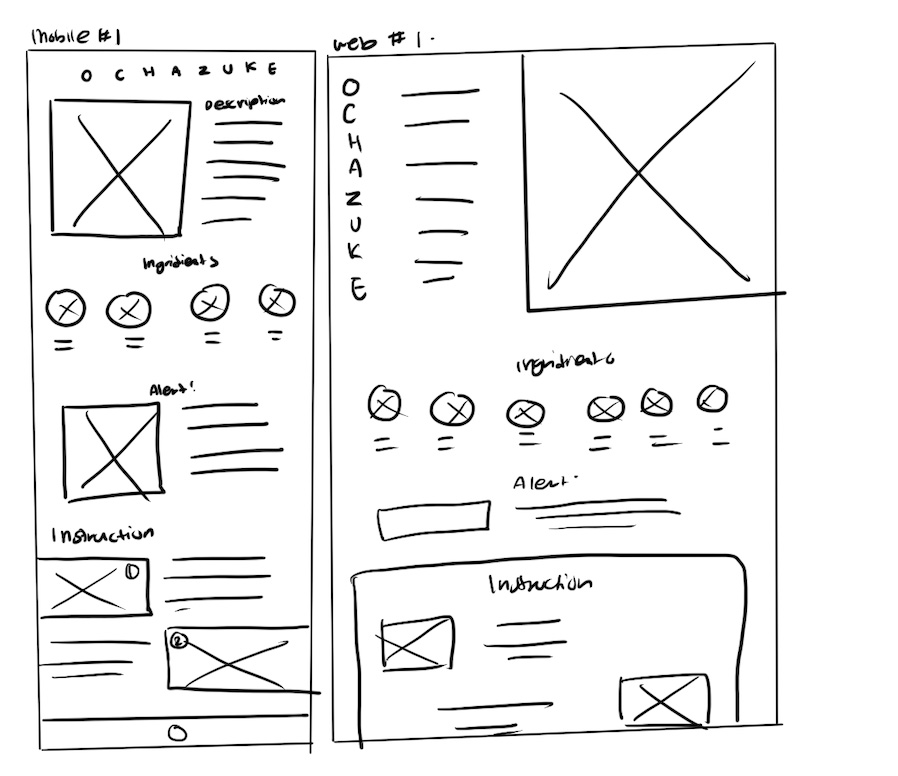 Mobile #1
OCHAZUKE
Description
Ingridients
Alert!
Instruction
1
2
web #1.
O
C
H
A
Z
U
K
E
Ingridients
Alert:
Instruction